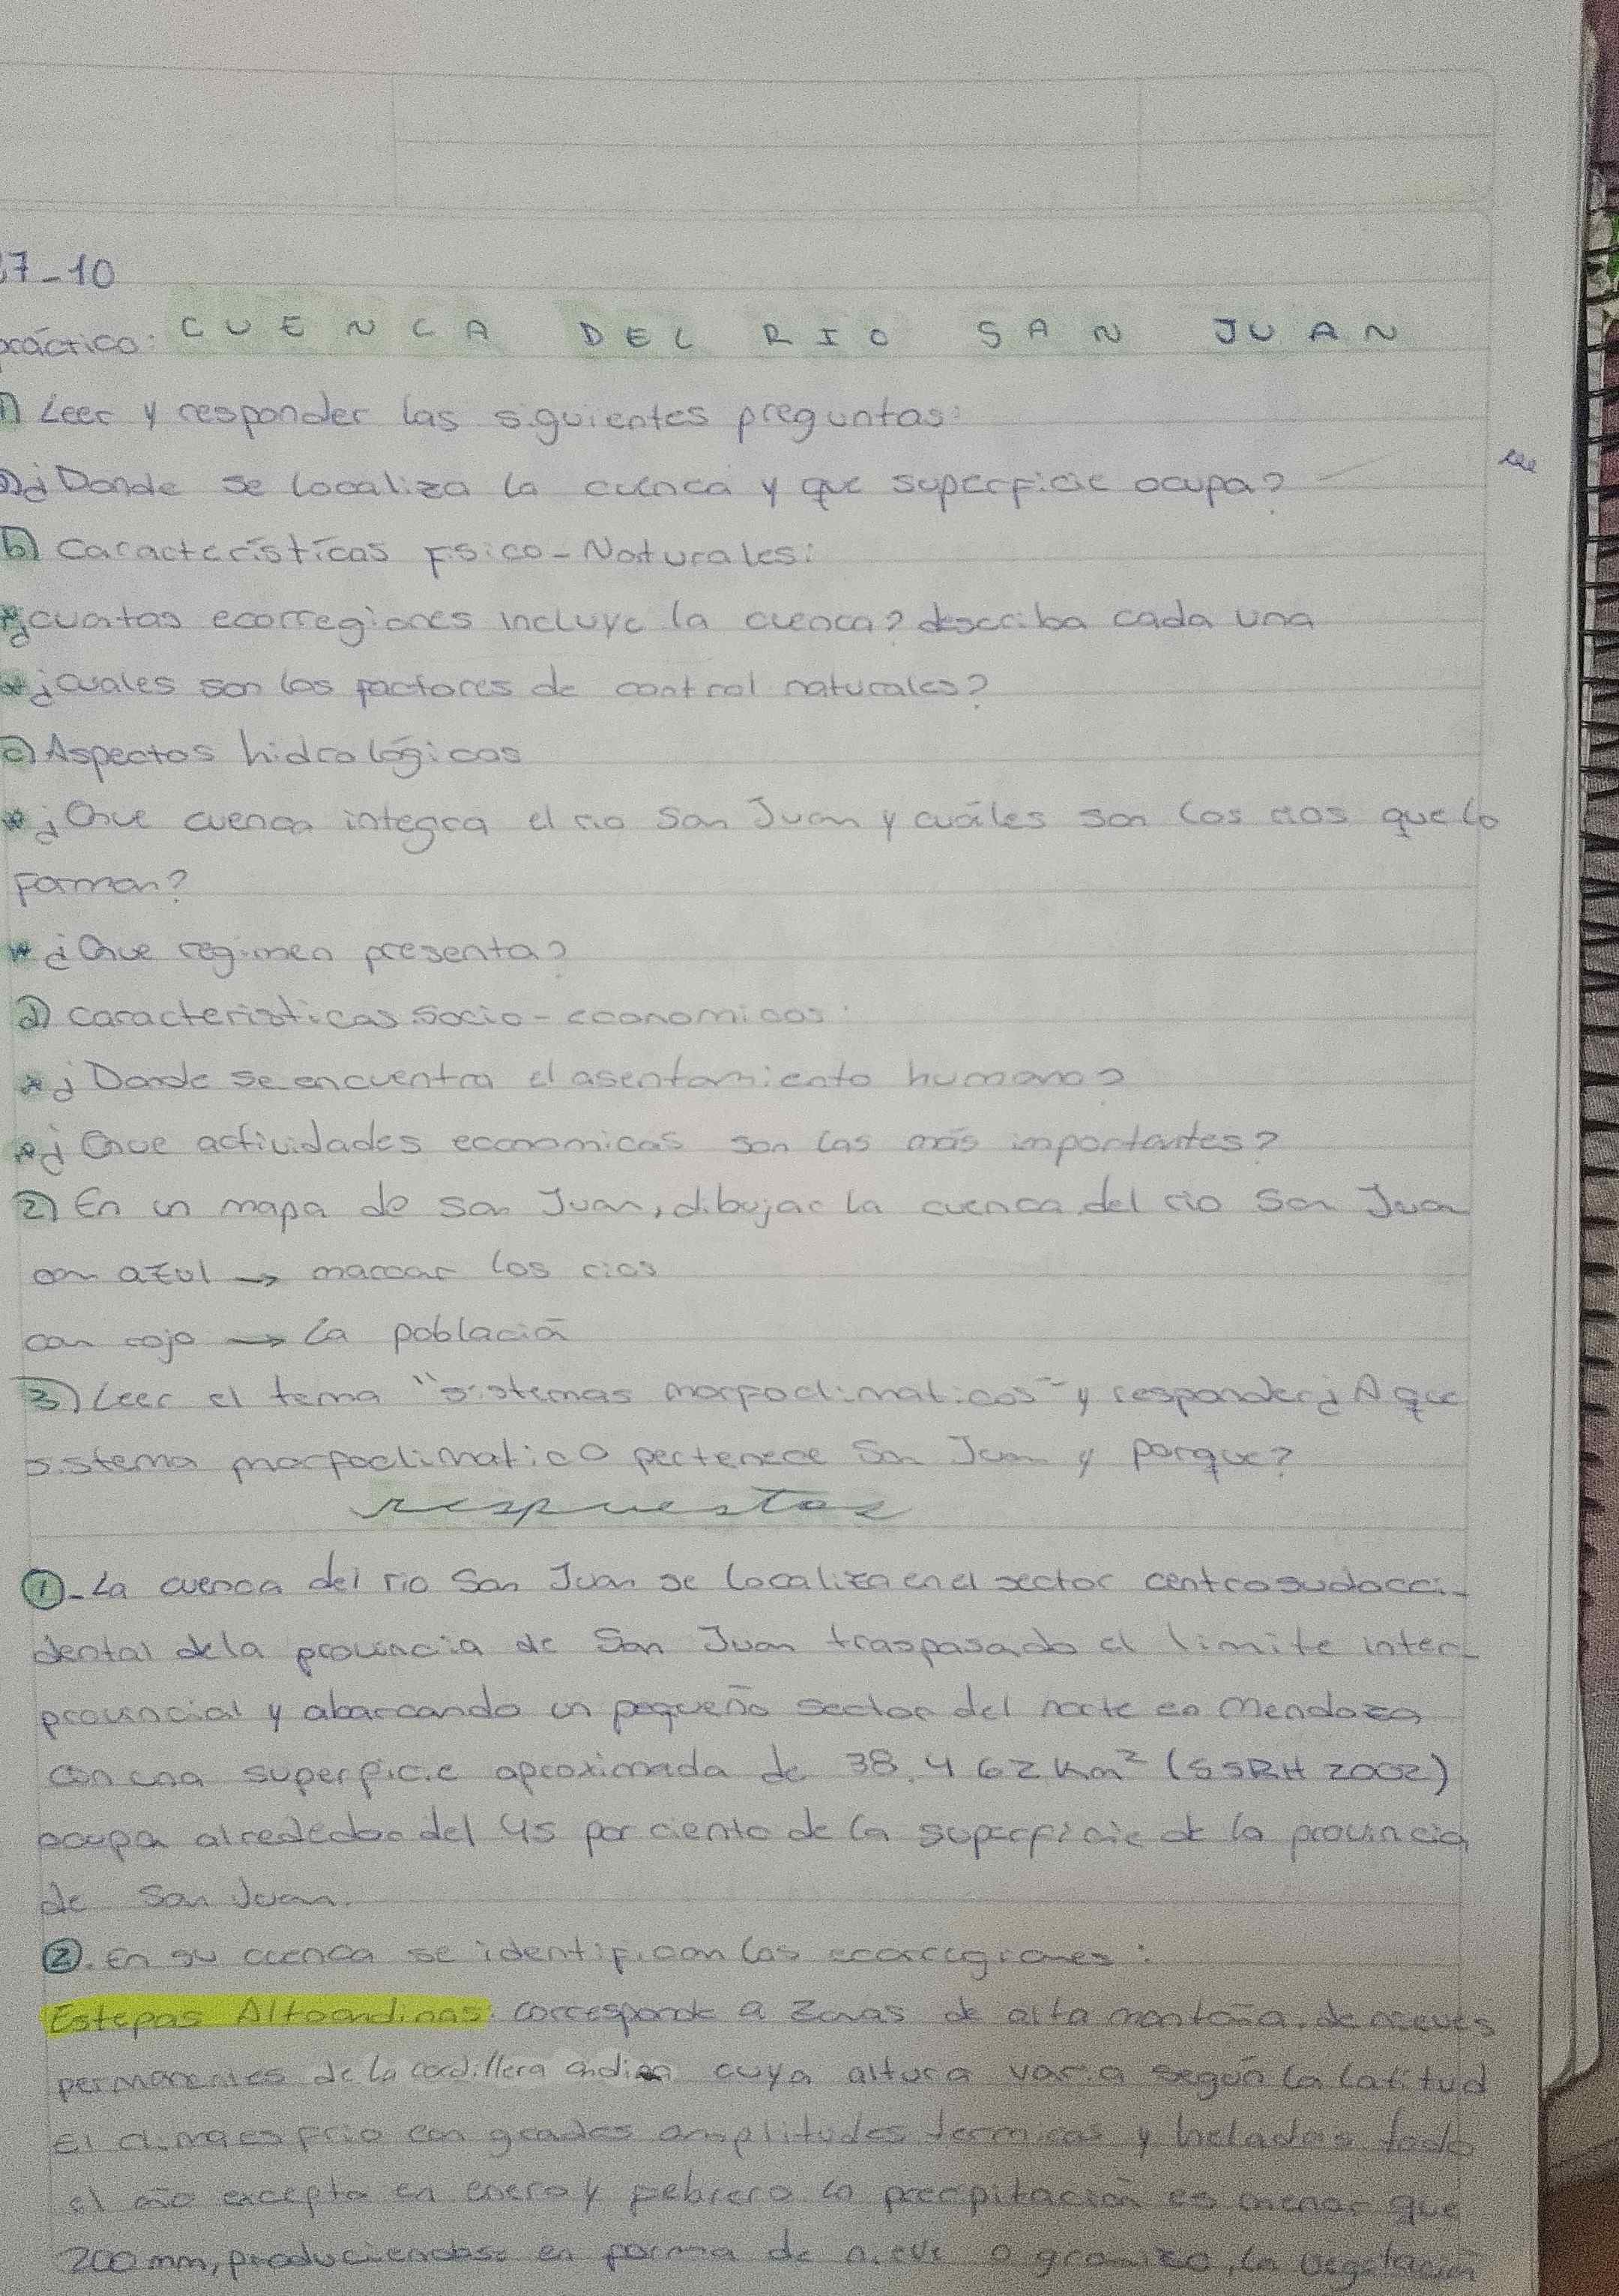 27-10
práctico: CUENCA DEL RIO SAN JUAN
1) Leer y responder las siguientes preguntas:
a) ¿Donde se localiza la cuenca y que superficie ocupa?
b) Características Fisico-Naturales:
* ¿cuantas ecorregiones incluye la cuenca? describa cada una
* ¿cuales son los factores de control naturales?
c) Aspectos hidrológicos
* ¿Que cuenca integra el rio San Juan y cuáles son los rios que lo
forman?
* ¿Que regimen presenta?
d) caracteristicas socio-economicas:
* ¿Donde se encuentra el asentamiento humano?
* ¿Que actividades economicas son las más importantes?
2) En un mapa de San Juan, dibujar la cuenca del rio San Juan
con azul → marcar los rios
con rojo → la población
3) Leer el tema "sistemas morfoclimaticos" y responder ¿A que
sistema morfoclimatico pertenece San Juan y porque?
respuestas
1.- La cuenca del rio San Juan se localiza en el sector centrosudocci-
dental de la provincia de San Juan traspasado el limite inter-
provincial y abarcando un pequeño sector del norte en Mendoza
con una superficie aproximada de 38.462 km² (SSRH 2002)
ocupa alrededor del 45 por ciento de la superficie de la provincia
de San Juan.
2. En su cuenca se identifican las ecorregiones:
Estepas Altoandinas: corresponde a zonas de alta montaña, de nieves
permanentes de la cordillera andina cuya altura varia según la latitud
El clima es frio con grandes amplitudes termicas y heladas todo
el año excepto en enero y febrero la precipitación es menor que
200 mm, produciendose en forma de nieve o granizo, la vegetación